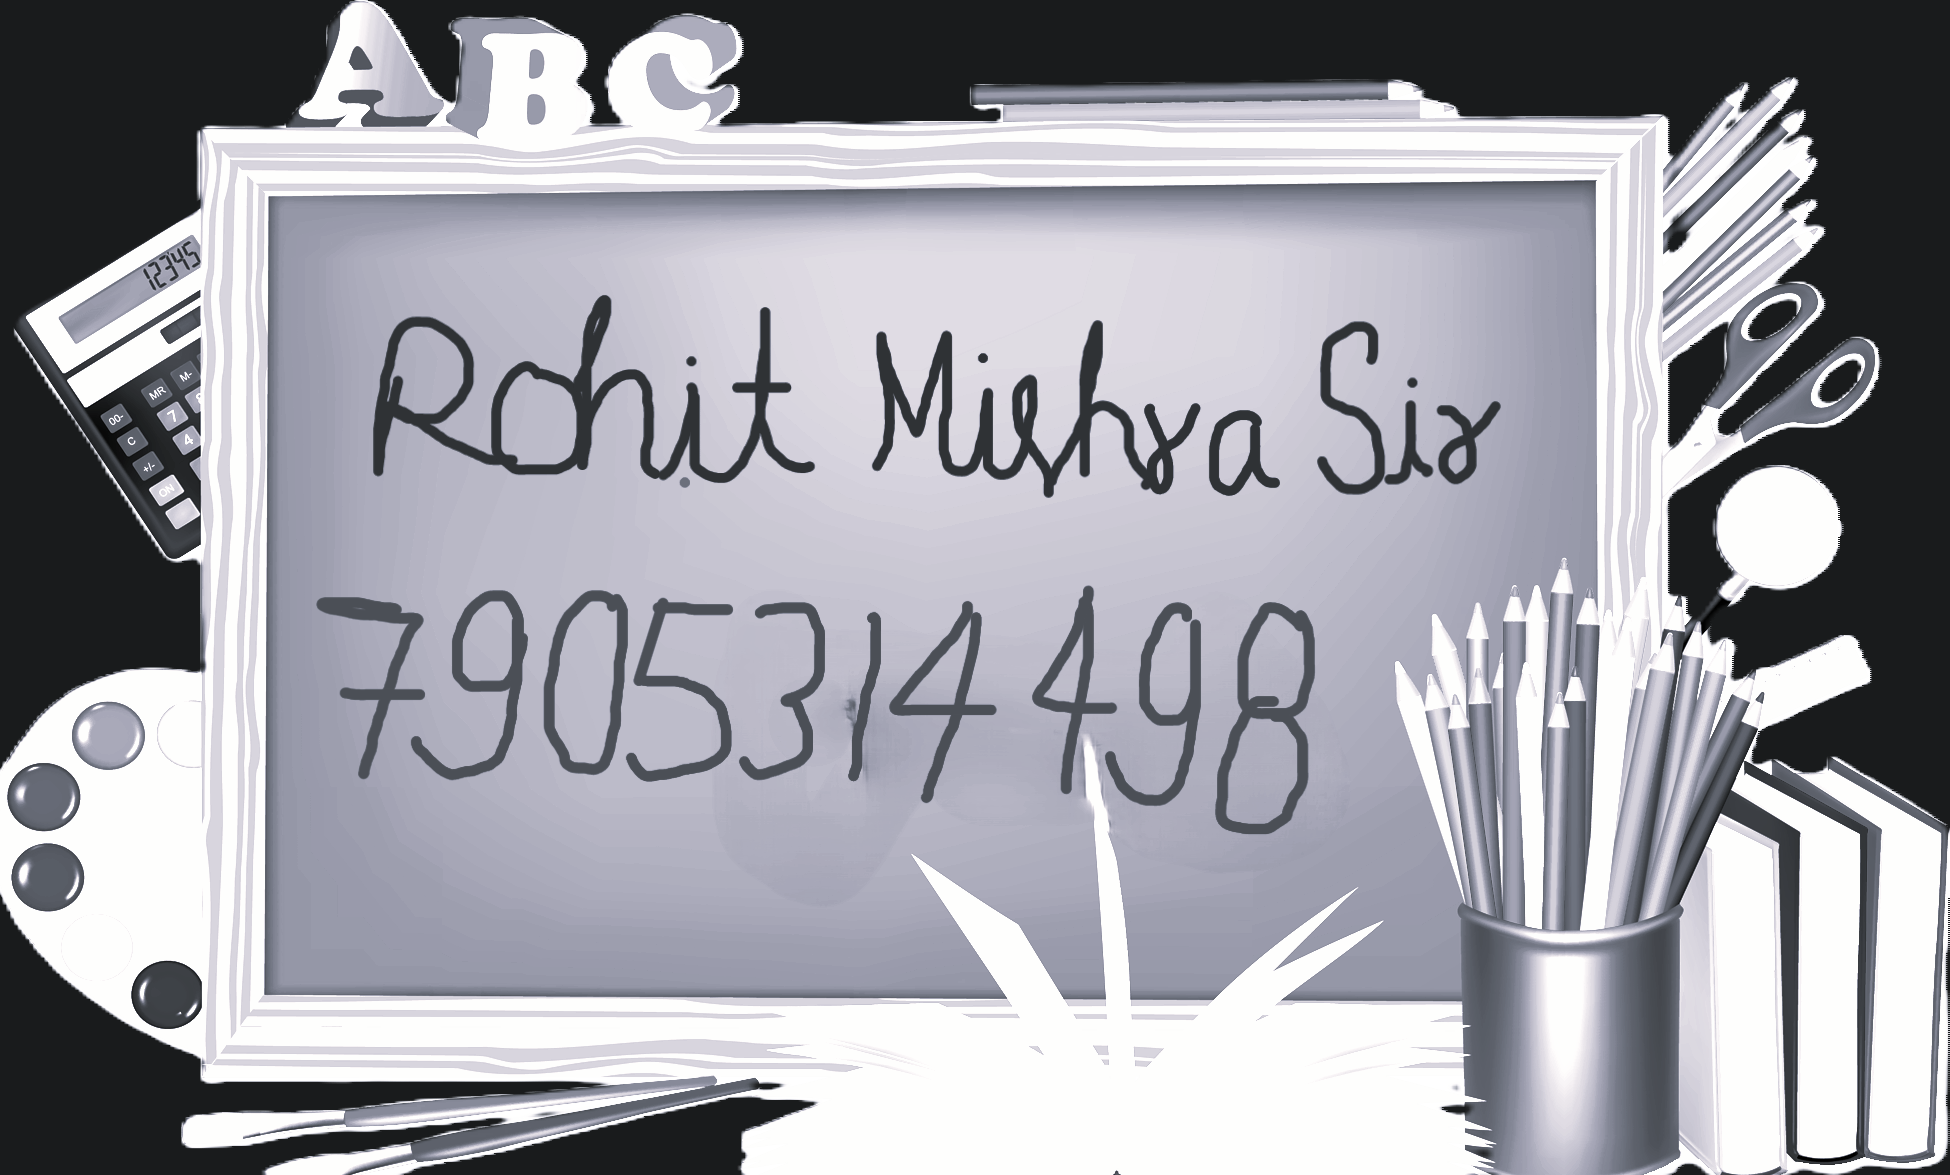 ABC
12345
00-
MR
M-
C
7
+/-
4
ON
Rohit Mishra Sir
7905314498